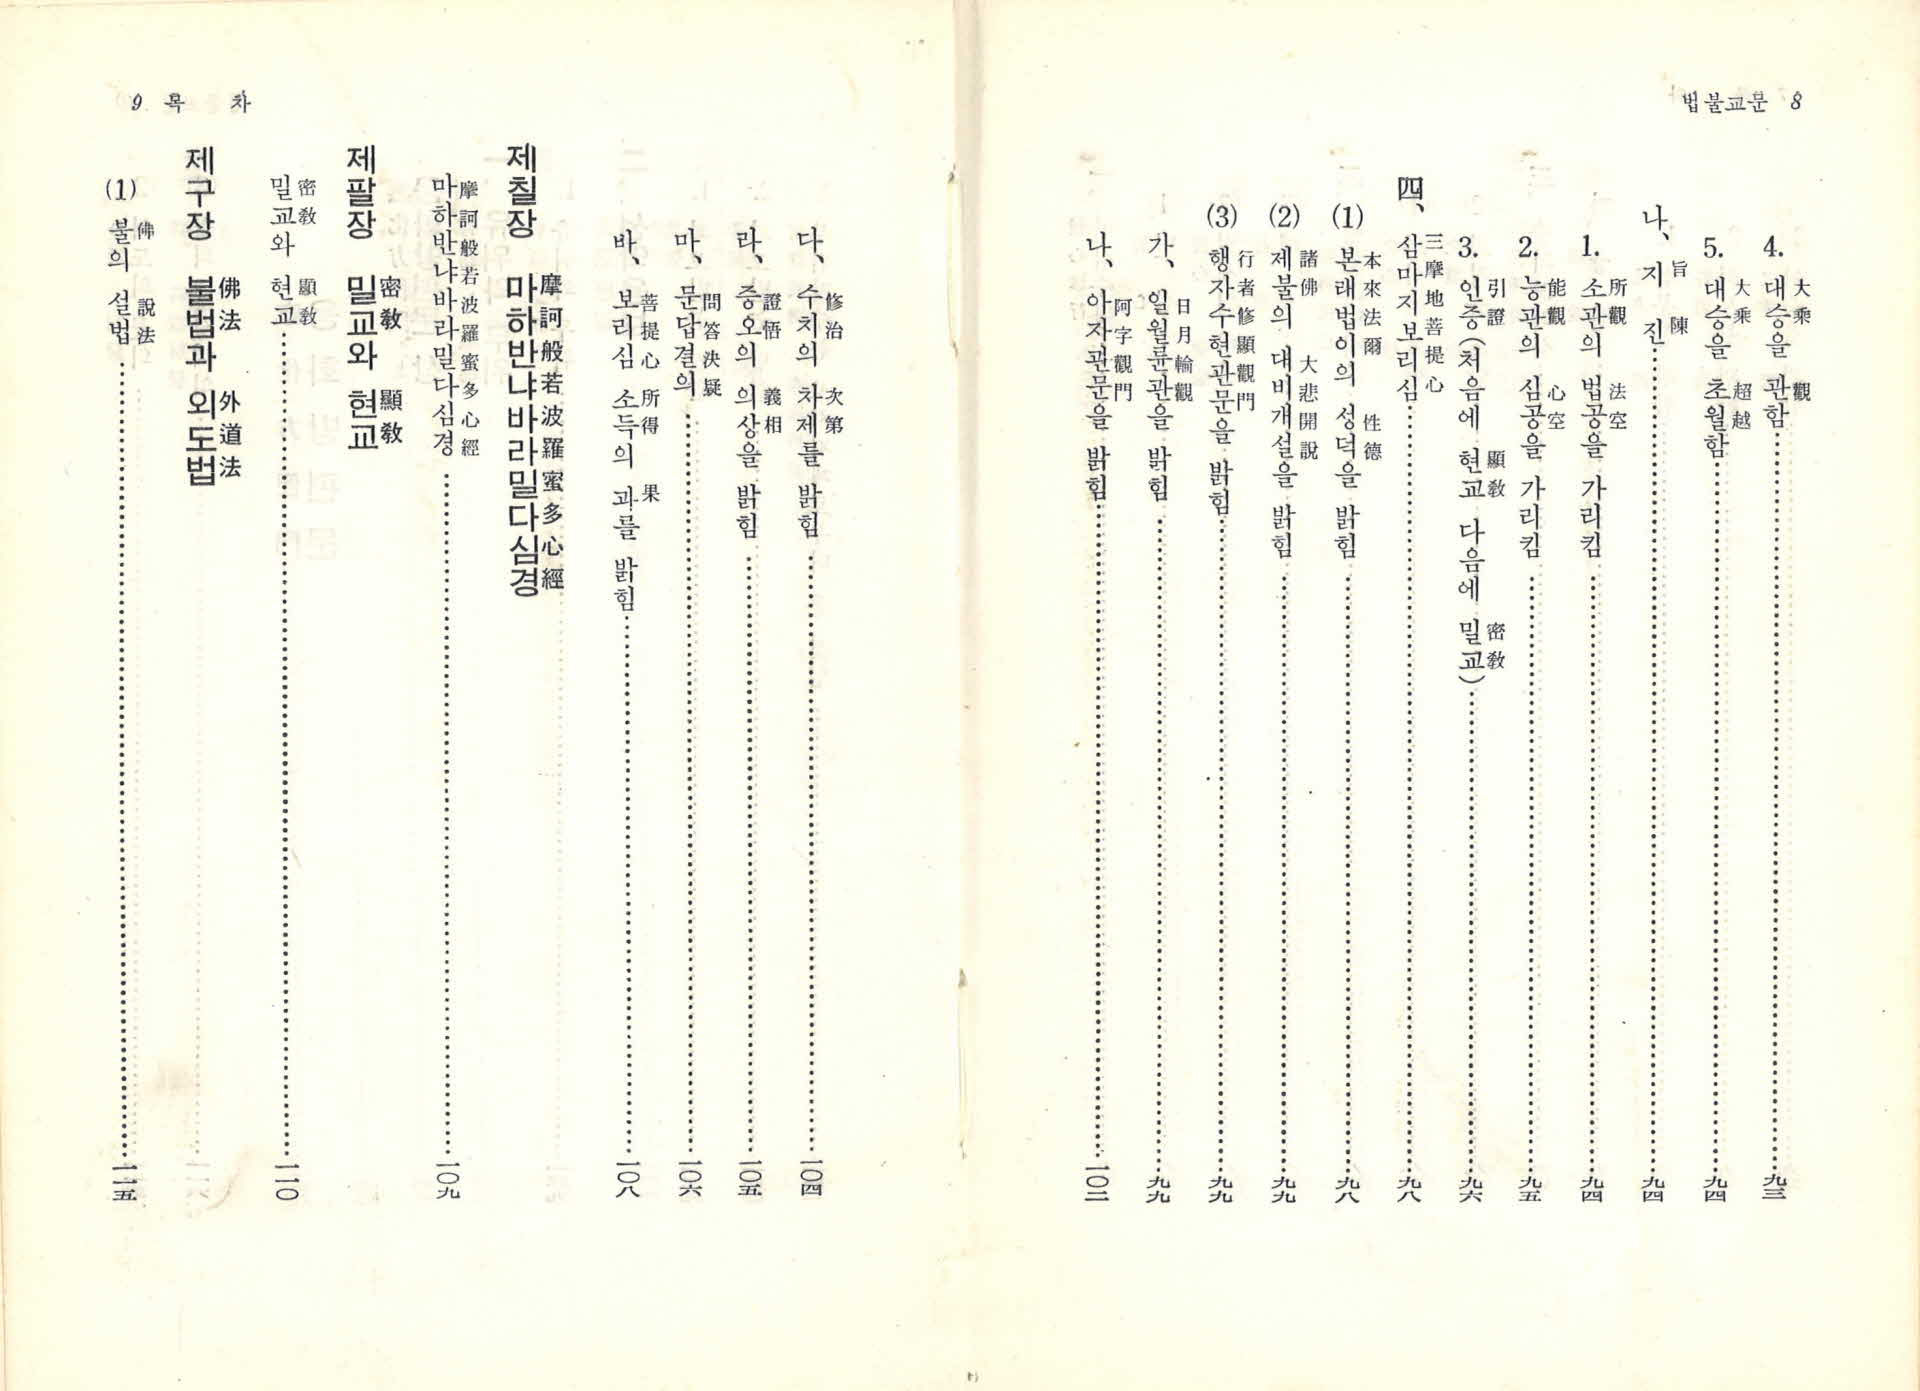 법불교문 8
4. 대승을 관함 大乘 觀 ……… 九三
5. 대승을 초월함 大乘 超越 ……… 九四
나、지 진 旨 陳 ……… 九四
1. 소관의 법공을 가리킴 所觀 法空 ……… 九四
2. 능관의 심공을 가리킴 能觀 心空 ……… 九五
3. 인증(처음에 현교 다음에 밀교) 引證 顯教 密教 ……… 九六
四、삼마지보리심 三摩地菩提心 ……… 九八
(1) 본래법이의 성덕을 밝힘 本來法爾 性德 ……… 九八
(2) 제불의 대비개설을 밝힘 諸佛 大悲開說 ……… 九九
(3) 행자수현관문을 밝힘 行者修顯觀門 ……… 九九
가、일월륜관을 밝힘 日月輪觀 ……… 九九
나、아자관문을 밝힘 阿字觀門 ……… 一〇二
9 목 차
다、수치의 차제를 밝힘 修治 次第 ……… 一〇四
라、증오의 의상을 밝힘 證悟 義相 ……… 一〇五
마、문답결의 問答決疑 ……… 一〇六
바、보리심 소득의 과를 밝힘 菩提心 所得 果 ……… 一〇八
제칠장 마하반냐바라밀다심경 摩訶般若波羅蜜多心經
마하반냐바라밀다심경 摩訶般若波羅蜜多心經 ……… 一〇九
제팔장 밀교와 현교 密教 顯教
밀교와 현교 密教 顯教 ……… 一一〇
제구장 불법과 외도법 佛法 外道法
(1) 불의 설법 佛 說法 ……… 一一五